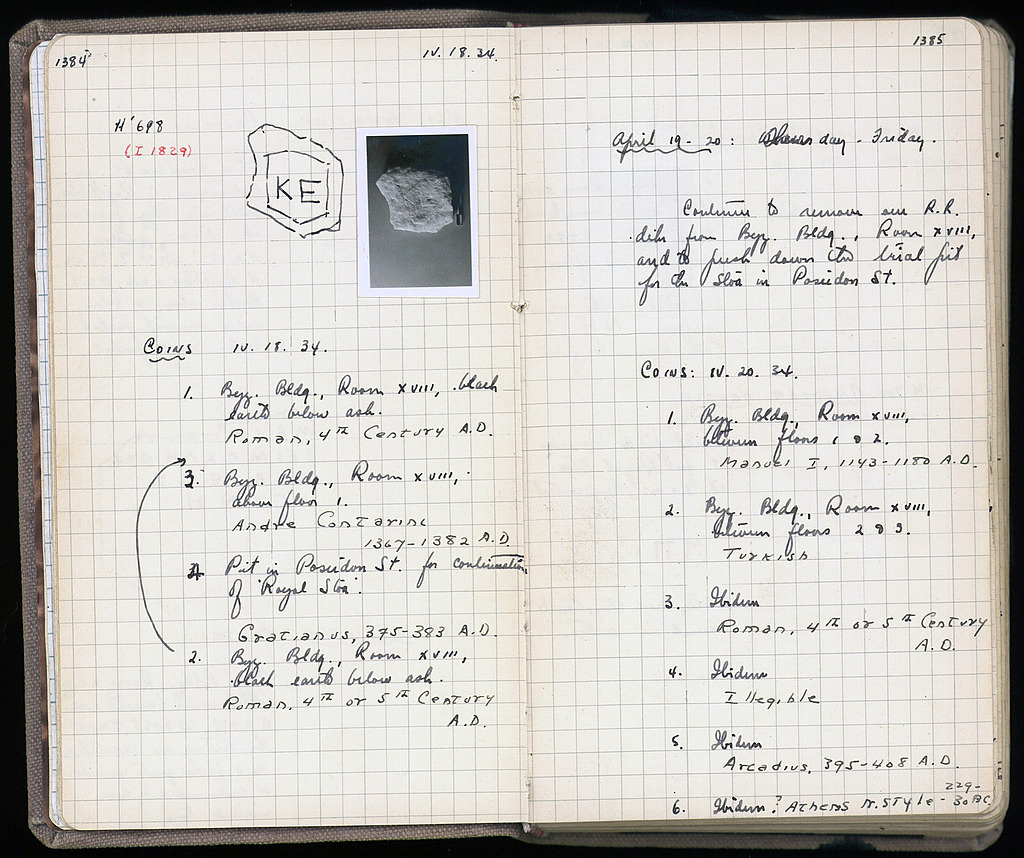 1384
IV. 18. 34.
H' 698
(I 1829)
KE
Coins IV. 18. 34.
1. Byz. Bldg., Room XVIII, black
earth below ash.
Roman, 4TH Century A.D.
3. Byz. Bldg., Room XVIII,
above floor 1.
Andre Contarini
1367-1382 A.D.
4. Pit in Poseidon St. for continuation
of 'Royal Stoa'.
Gratianus, 375-383 A.D.
2. Byz. Bldg., Room XVIII,
black earth below ash.
Roman, 4TH or 5TH Century
A.D.
1385
April 19-20: Thursday - Friday.
Continue to remove our R.R.
dike from Byz. Bldg., Room XVIII,
and to push down the trial pit
for the Stoa in Poseidon St.
Coins: IV. 20. 34.
1. Byz. Bldg., Room XVIII,
between floors 1 & 2.
Manuel I, 1143-1180 A.D.
2. Byz. Bldg., Room XVIII,
between floors 2 & 3.
Turkish
3. Ibidem
Roman, 4TH or 5TH Century
A.D.
4. Ibidem
Illegible
5. Ibidem
Arcadius, 395-408 A.D.
6. Ibidem? Athens N. Style - 229-
30 BC.